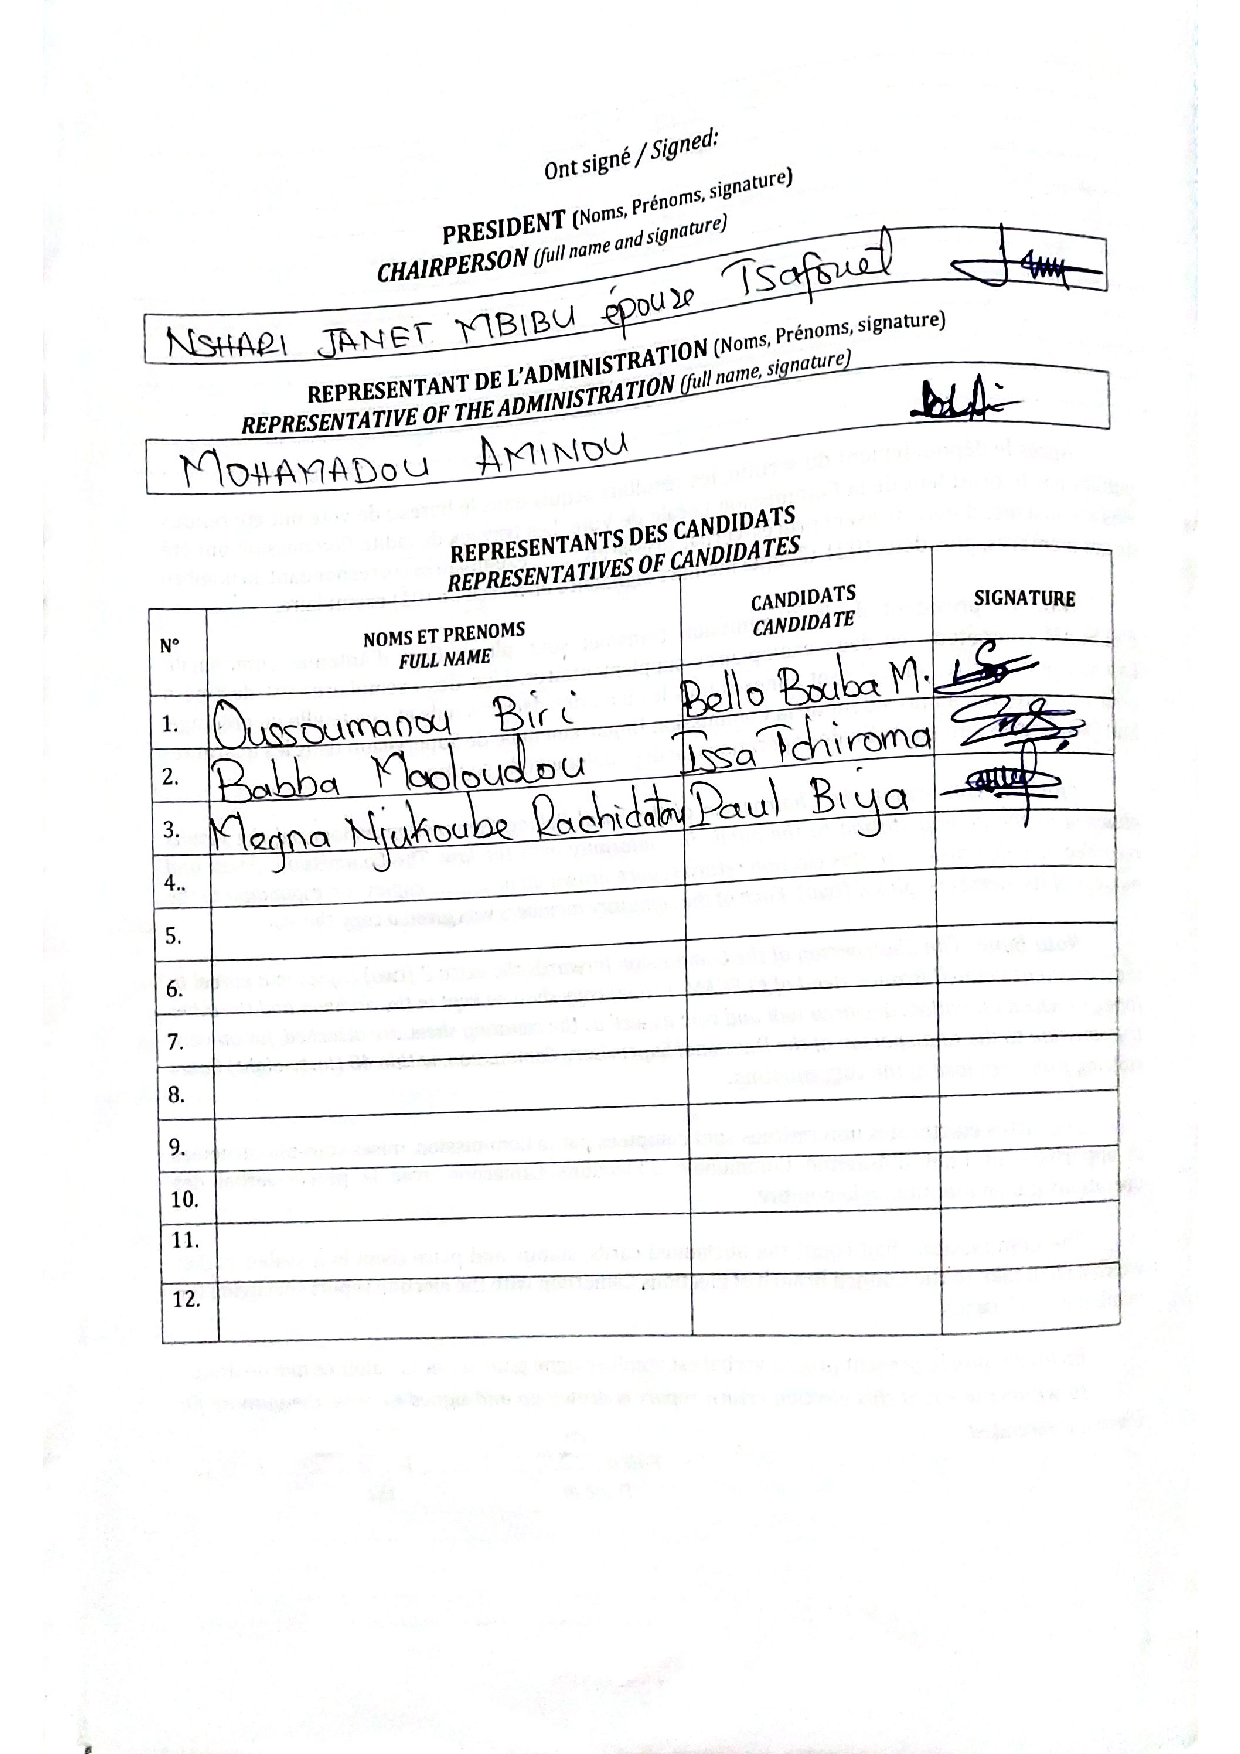 Ont signé / Signed:
PRESIDENT (Noms, Prénoms, signature)
CHAIRPERSON (full name and signature)
NSHARI JANET MBIBU épouse Tsafouet
REPRESENTANT DE L'ADMINISTRATION (Noms, Prénoms, signature)
REPRESENTATIVE OF THE ADMINISTRATION (full name, signature)
MOHAMADOU AMINOU
REPRESENTANTS DES CANDIDATS
REPRESENTATIVES OF CANDIDATES
N° NOMS ET PRENOMS CANDIDATS SIGNATURE
FULL NAME CANDIDATE
1. Oussoumanou Biri Bello Bouba M.
2. Babba Maoloudou Issa Tchiroma
3. Megna Njukoube Rachidatou Paul Biya
4..
5.
6.
7.
8.
9.
10.
11.
12.